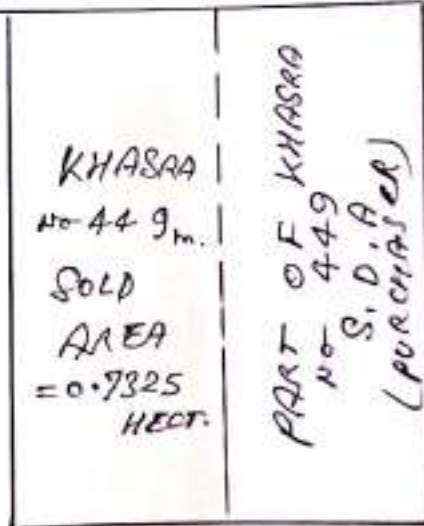 KHASRA
No 449m.
SOLD
AREA
=0.7325
HECT.
PART OF KHASRA
No 449
S.D.A
(PURCHASER)